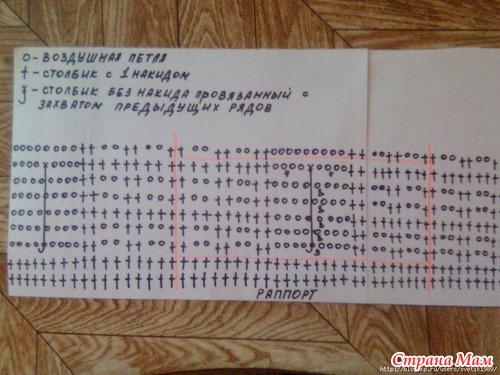 О- ВОЗДУШНАЯ ПЕТЛЯ
†- СТОЛБИК С 1 НАКИДОМ
- СТОЛБИК БЕЗ НАКИДА ПРОВЯЗАННЫЙ С
ЗАХВАТОМ ПРЕДЫДУЩИХ РЯДОВ
РАППОРТ
Страна Мам